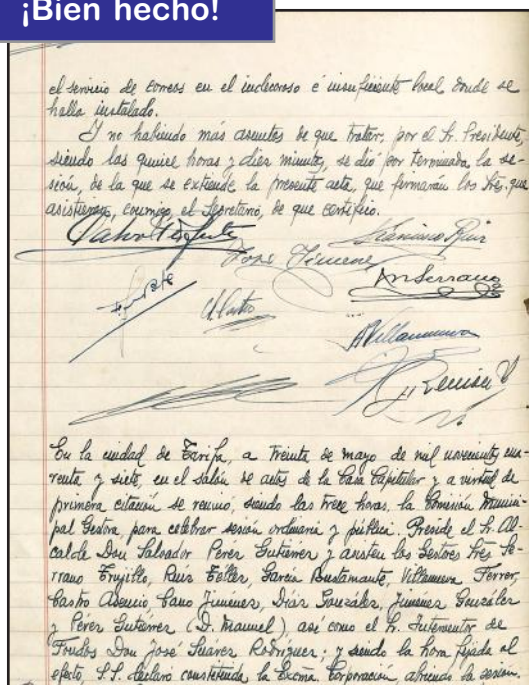 ¡Bien hecho!
el servicio de correos en el indecoroso é insuficiente local donde se
halla instalado.
Y no habiendo más asuntos de que tratar, por el Sr. Presidente,
siendo las quince horas y diez minutos, se dió por terminada la se-
sión, de la que se extiende la presente acta, que firmarán los Sres. que
asistieron, conmigo, el Secretario, de que certifico.
José Jimenez
An Serrano
A Villanueva
En la ciudad de Tarifa, a treinta de mayo de mil novecientos cua-
renta y siete, en el salón de actos de la Casa Capitular y a virtud de
primera citación se reunió, siendo las trece horas, la Comisión Munici-
pal Gestora, para celebrar sesión ordinaria y pública. Preside el Sr. Al-
calde Don Salvador Perez Gutierrez y asisten los Gestores Sres. Se-
rrano Trujillo, Ruiz Téller, García Bustamante, Villanueva Ferrer,
Castro Asencio, Cano Jiménez, Diáz González, Jimenez González
y Pérez Gutierrez (D. Manuel) así como el Sr. Interventor de
Fondos Don José Suárez Rodríguez; y siendo la hora fijada al
efecto, S.S. declaró constituida la Excma. Corporación, abriendo la sesión.